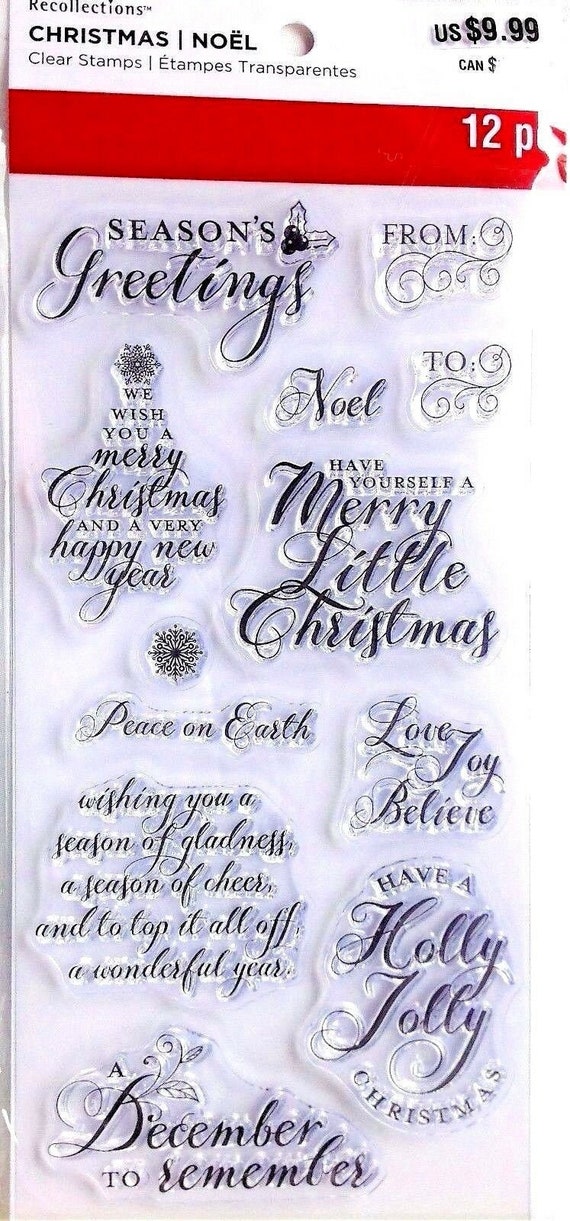 Recollections™
CHRISTMAS | NOËL
Clear Stamps | Étampes Transparentes
US $9.99
CAN $
12
SEASON'S
Greetings
FROM:
TO:
Noel
WE
WISH
YOU A
merry
Christmas
AND A VERY
happy new
year
HAVE
YOURSELF A
Merry
Little
Christmas
Peace on Earth
Love
Joy
Believe
wishing you a
season of gladness,
a season of cheer,
and to top it all off,
a wonderful year.
HAVE A
Holly
Jolly
CHRISTMAS
A
December
TO remember